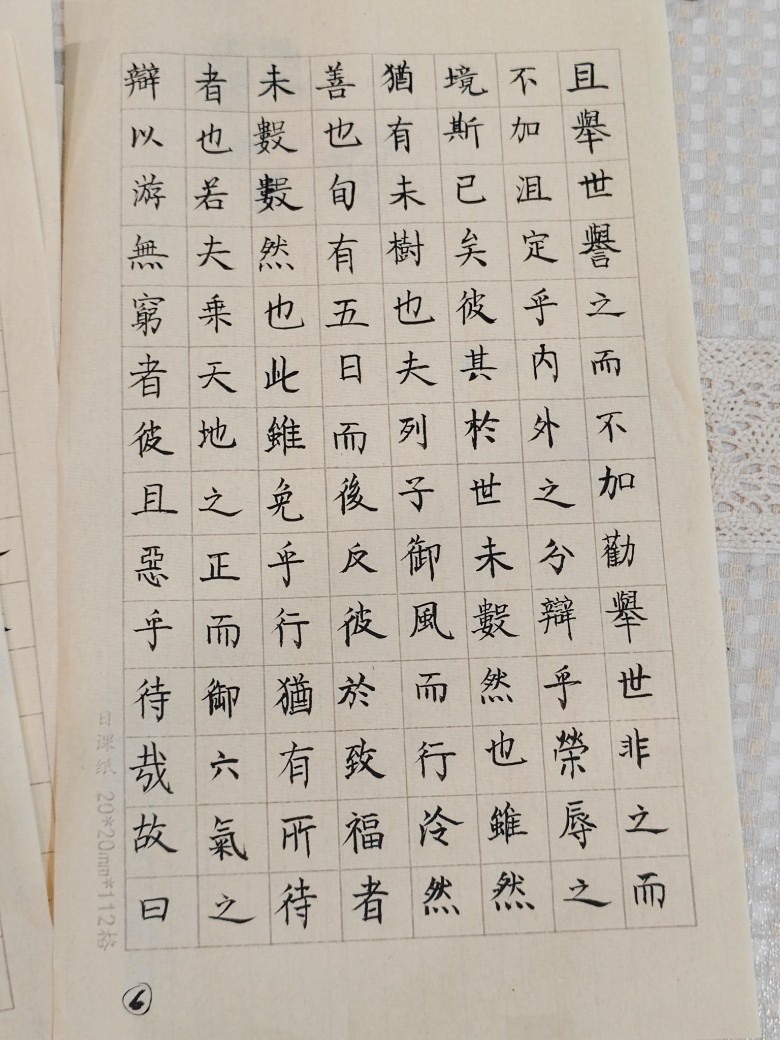 且舉世譽之而不加勸舉世非之而
不加沮定乎內外之分辯乎榮辱之
境斯已矣彼其於世未數數然也雖然
猶有未樹也夫列子御風而行泠然
善也旬有五日而後反彼於致福者
未數數然也此雖免乎行猶有所待
者也若夫乗天地之正而御六氣之
辯以游無窮者彼且惡乎待哉故曰
日课纸 20*20mm*112格
6